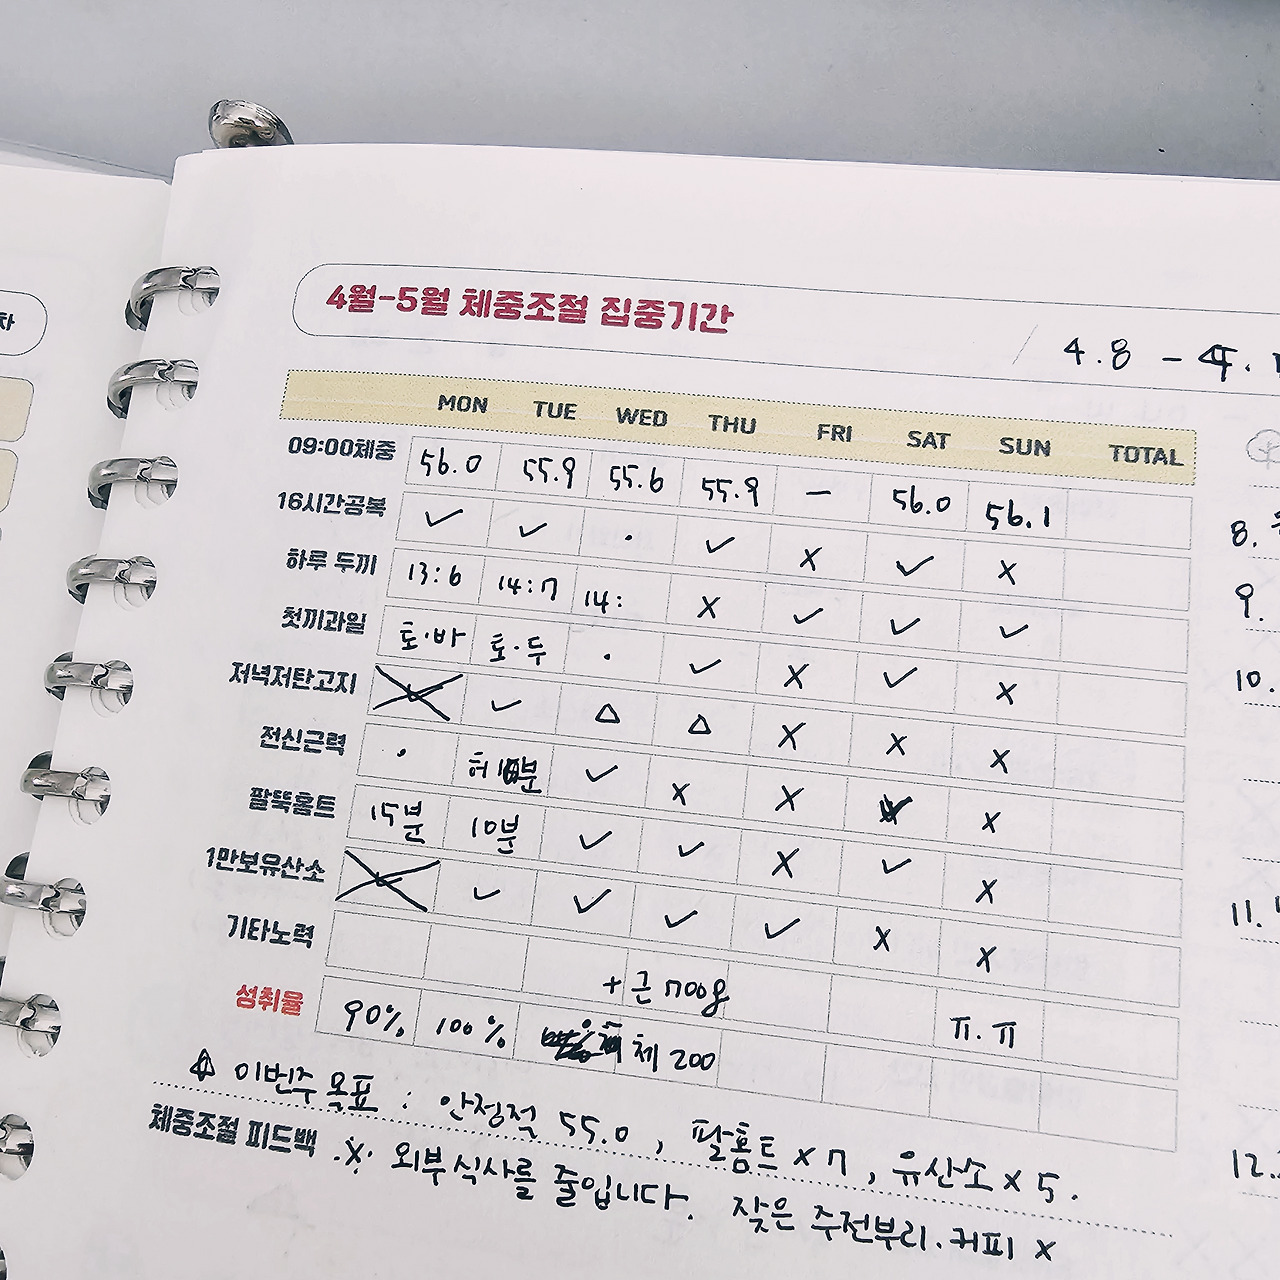 차
4월-5월 체중조절 집중기간
4.8 - 4.1
MON TUE WED THU FRI SAT SUN TOTAL
09:00체중 56.0 55.9 55.6 55.9 - 56.0 56.1
16시간공복 ✓ ✓ · ✓ X ✓ X
하루 두끼 13:6 14:7 14: X ✓ ✓ ✓
첫끼과일 토·바 토·두 · ✓ X ✓ X
저녁저탄고지 ✓ △ △ X X X
전신근력 · 허10분 ✓ X X X
팔뚝홈트 15분 10분 ✓ ✓ X ✓ X
1만보유산소 ✓ ✓ ✓ ✓ X X
기타노력 + 근 700g
성취율 90% 100% 체 200 ㅠ.ㅠ
이번주 목표 : 안정적 55.0, 팔홈트 x 7, 유산소 x 5.
체중조절 피드백 ※ 외부식사를 줄입니다. 잦은 주전부리.커피 x
8.
9.
10.
11.
12.